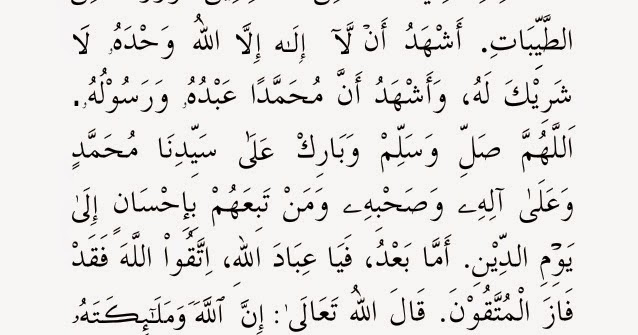 الطَّيِّبَاتِ. أَشْهَدُ أَنْ لَّآ إِلَـٰه إِلَّا اللهُ وَحْدَهُۥ لَا
شَرِيْكَ لَهُ، وَأَشْهَدُ أَنَّ مُحَمَّدًا عَبْدُهُۥ وَرَسُوْلُهُۥ.
اَللَّهُمَّ صَلِّ وَسَلِّمْ وَبَارِكْ عَلَىٰ سَيِّدِنَا مُحَمَّدٍ
وَعَلَىٰ آلِهِۦ وَصَحْبِهِۦ وَمَنْ تَبِعَهُمْ بِإِحْسَانٍ إِلَىٰ
يَوْمِ الدِّيْنِ. أَمَّا بَعْدُ، فَيَا عِبَادَ اللهِ، اِتَّقُواْ اللَّهَ فَقَدْ
فَازَ الْمُتَّقُوْنَ. قَالَ اللهُ تَعَالَىٰ: إِنَّ ٱللَّهَ وَمَلَـٰٓئِكَتَهُۥ